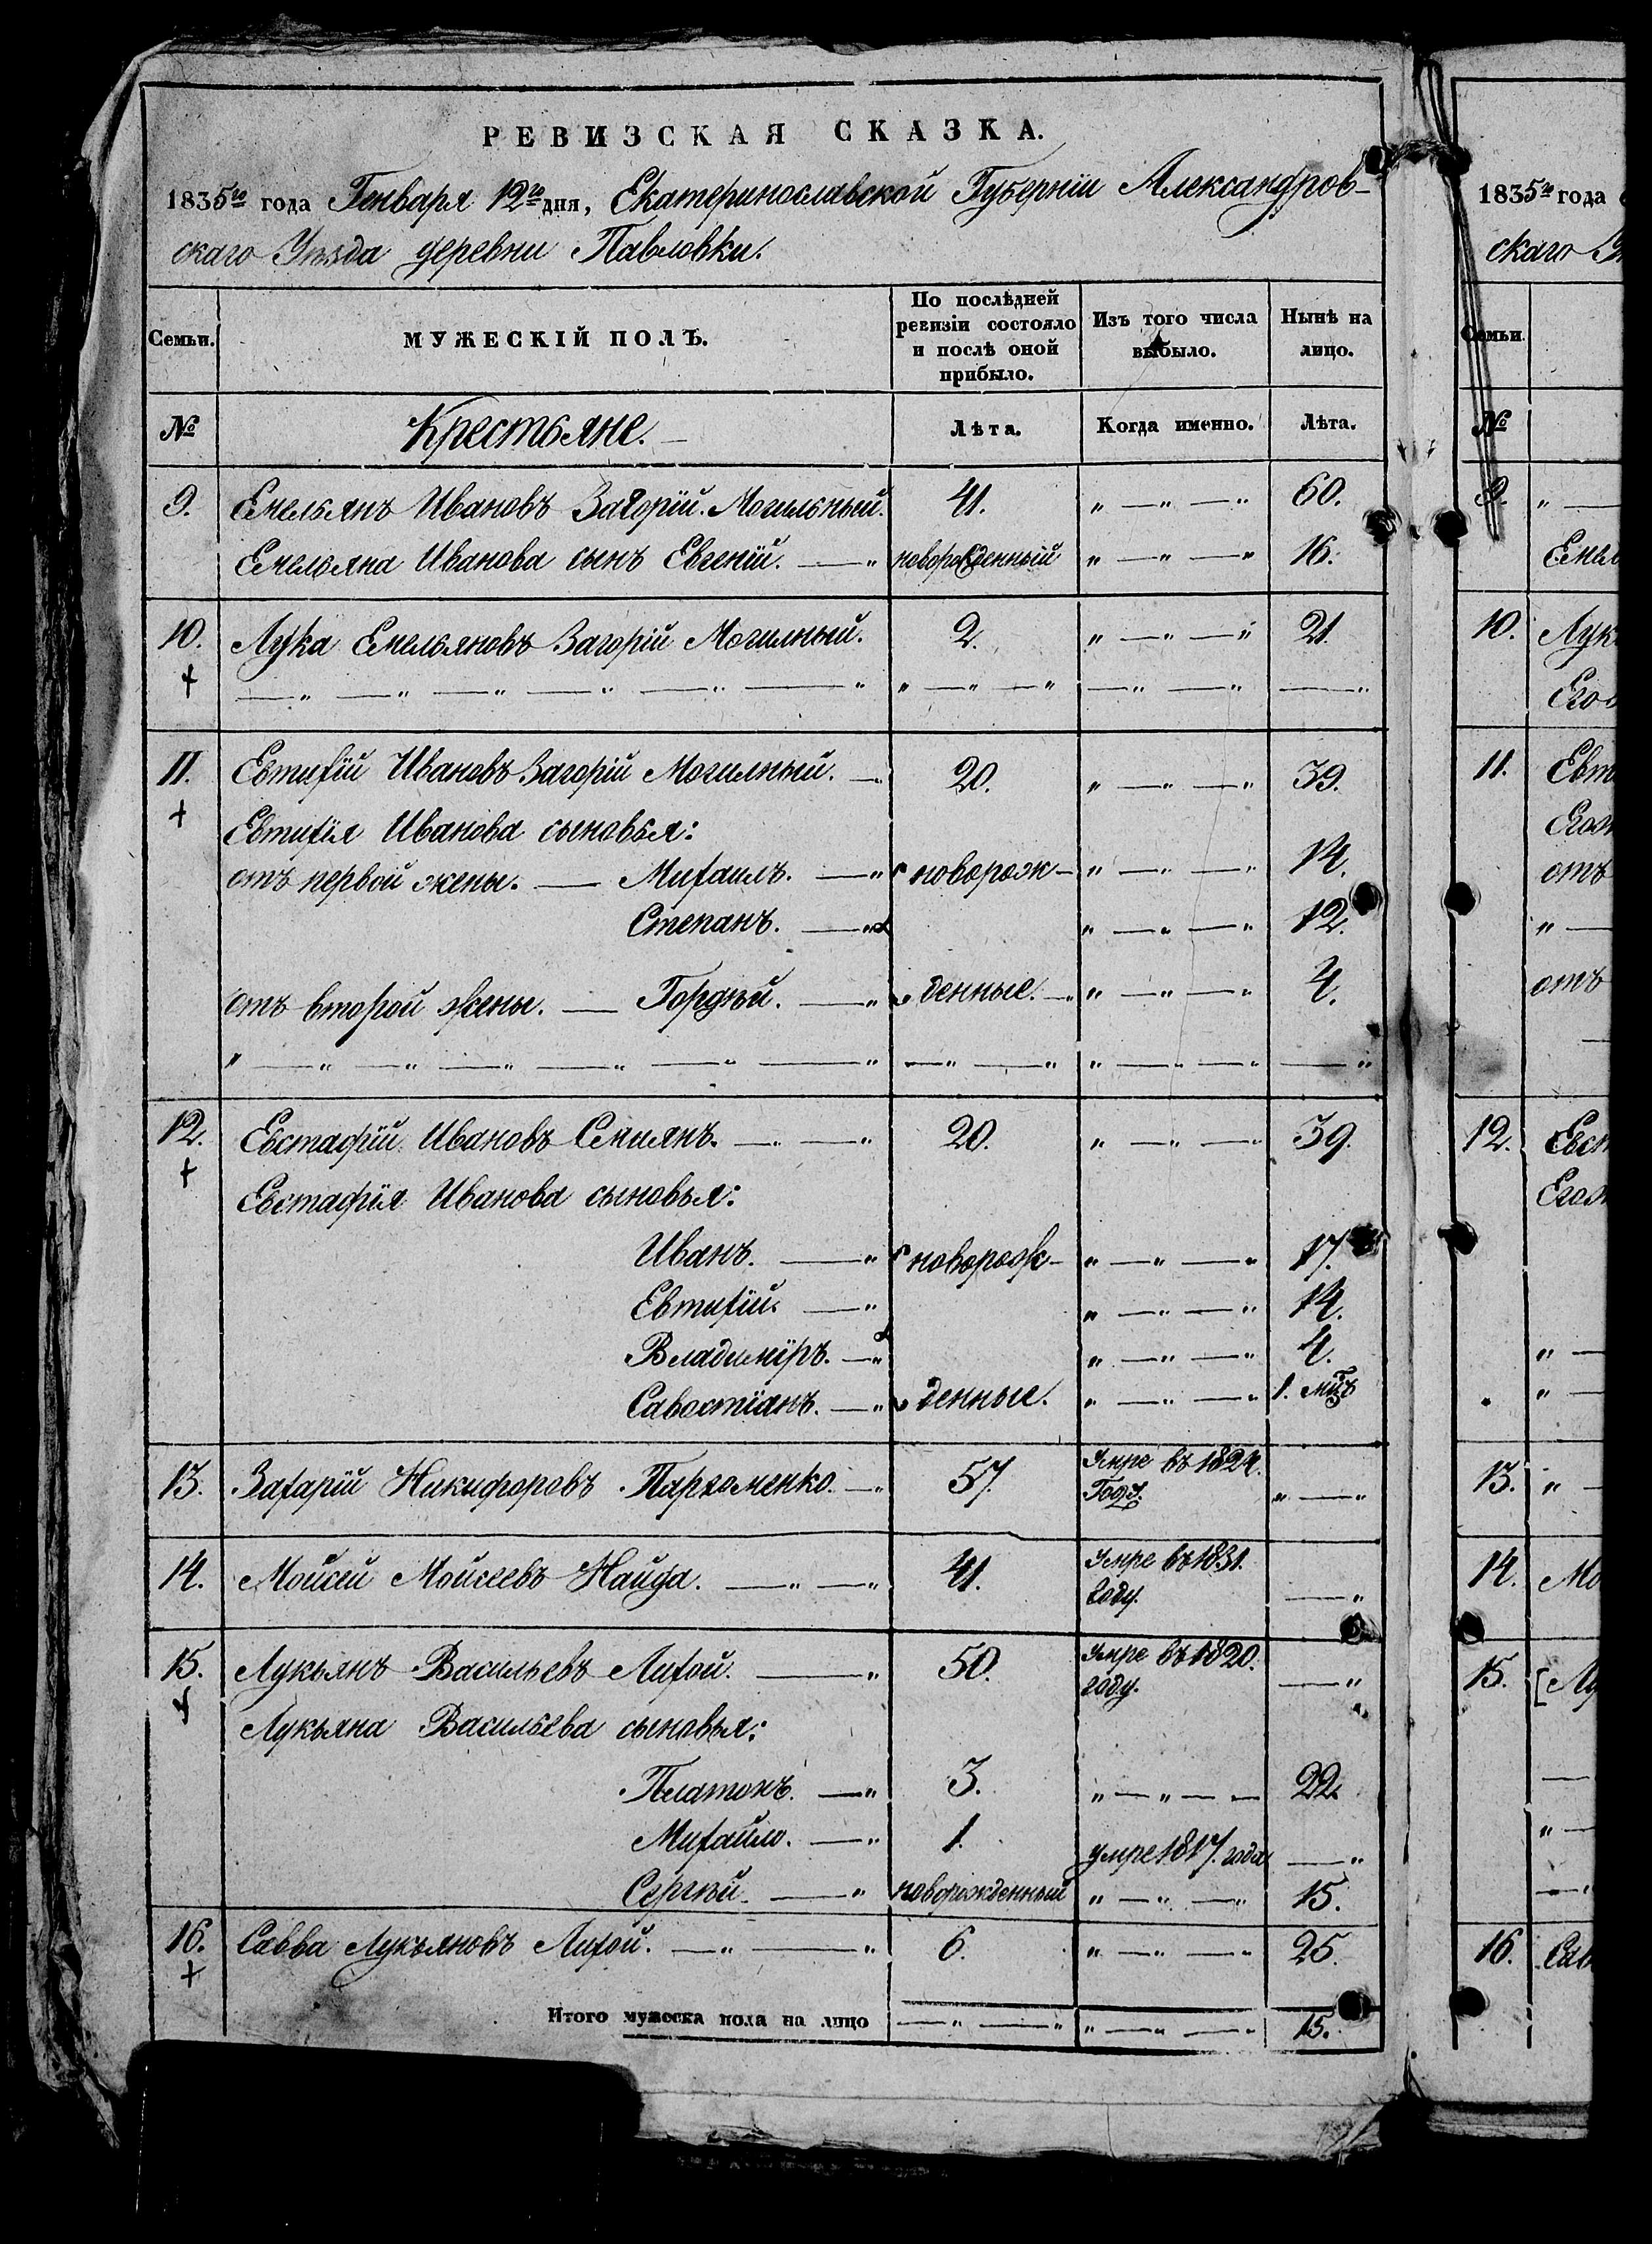 РЕВИЗСКАЯ СКАЗКА.
1835го года Генваря 12го дня, Екатеринославской Губерніи Александров-
скаго Уѣзда деревни Павловки.
Семьи. МУЖЕСКІЙ ПОЛЪ. По послѣдней ревизіи состояло и послѣ оной прибыло. Изъ того числа выбыло. Нынѣ на лицо.
№ Крестьяне. Лѣта. Когда именно. Лѣта.
9. Емельянъ Ивановъ Загорій. Могильный. 41. " — " — " 60.
Емельяна Иванова сынъ Евгеній. — " новорожденный " — " — " 16.
10. Лука Емельяновъ Загорій Могилный. 2. " — " — " 21.
11. Евтихій Ивановъ Загорій Могилный. — 20. " — " — " 39.
Евтихія Иванова сыновья:
отъ первой жены. — Михаилъ. — " новорож- " — " — " 14.
Степанъ. — " " — " — " 12.
отъ второй жены. — Гордѣй. — " денные. — " " — " — " 4.
12. Евстафій Ивановъ Семиянъ. — " — " 20. " — " — " 39.
Евстафія Иванова сыновья:
Иванъ. — " новорож- " — " — " 17.
Евтихій. — " " — " — " 14.
Владиміръ. — " " — " — " 4.
Савостіянъ. — " денные. " — " — " 1. мцъ
13. Захарій Никифоровъ Пархоменко. — " 57. Умре въ 1824. Году. " — "
14. Мойсей Мойсеевъ Найда. — " — " 41. Умре въ 1831. году. — "
15. Лукьянъ Васильевъ Лихой. — " 50. Умре въ 1820. году. — "
Лукьяна Васильева сыновья:
Платонъ. — " 3. " — " — — 22.
Михайло. — " 1. умре 1817. года — "
Сергѣй. — " новорожденный " — " — " 15.
16. Савва Лукьяновъ Лихой. — " — " 6. " — " — " 25.
Итого мужеска пола на лицо — " — " " — " — " 15.
1835го года
скаго
Семьи.
№
9. " —
10.
11.
отъ
" —
отъ
12.
" —
" —
13. " —
14.
15.
" —
16.